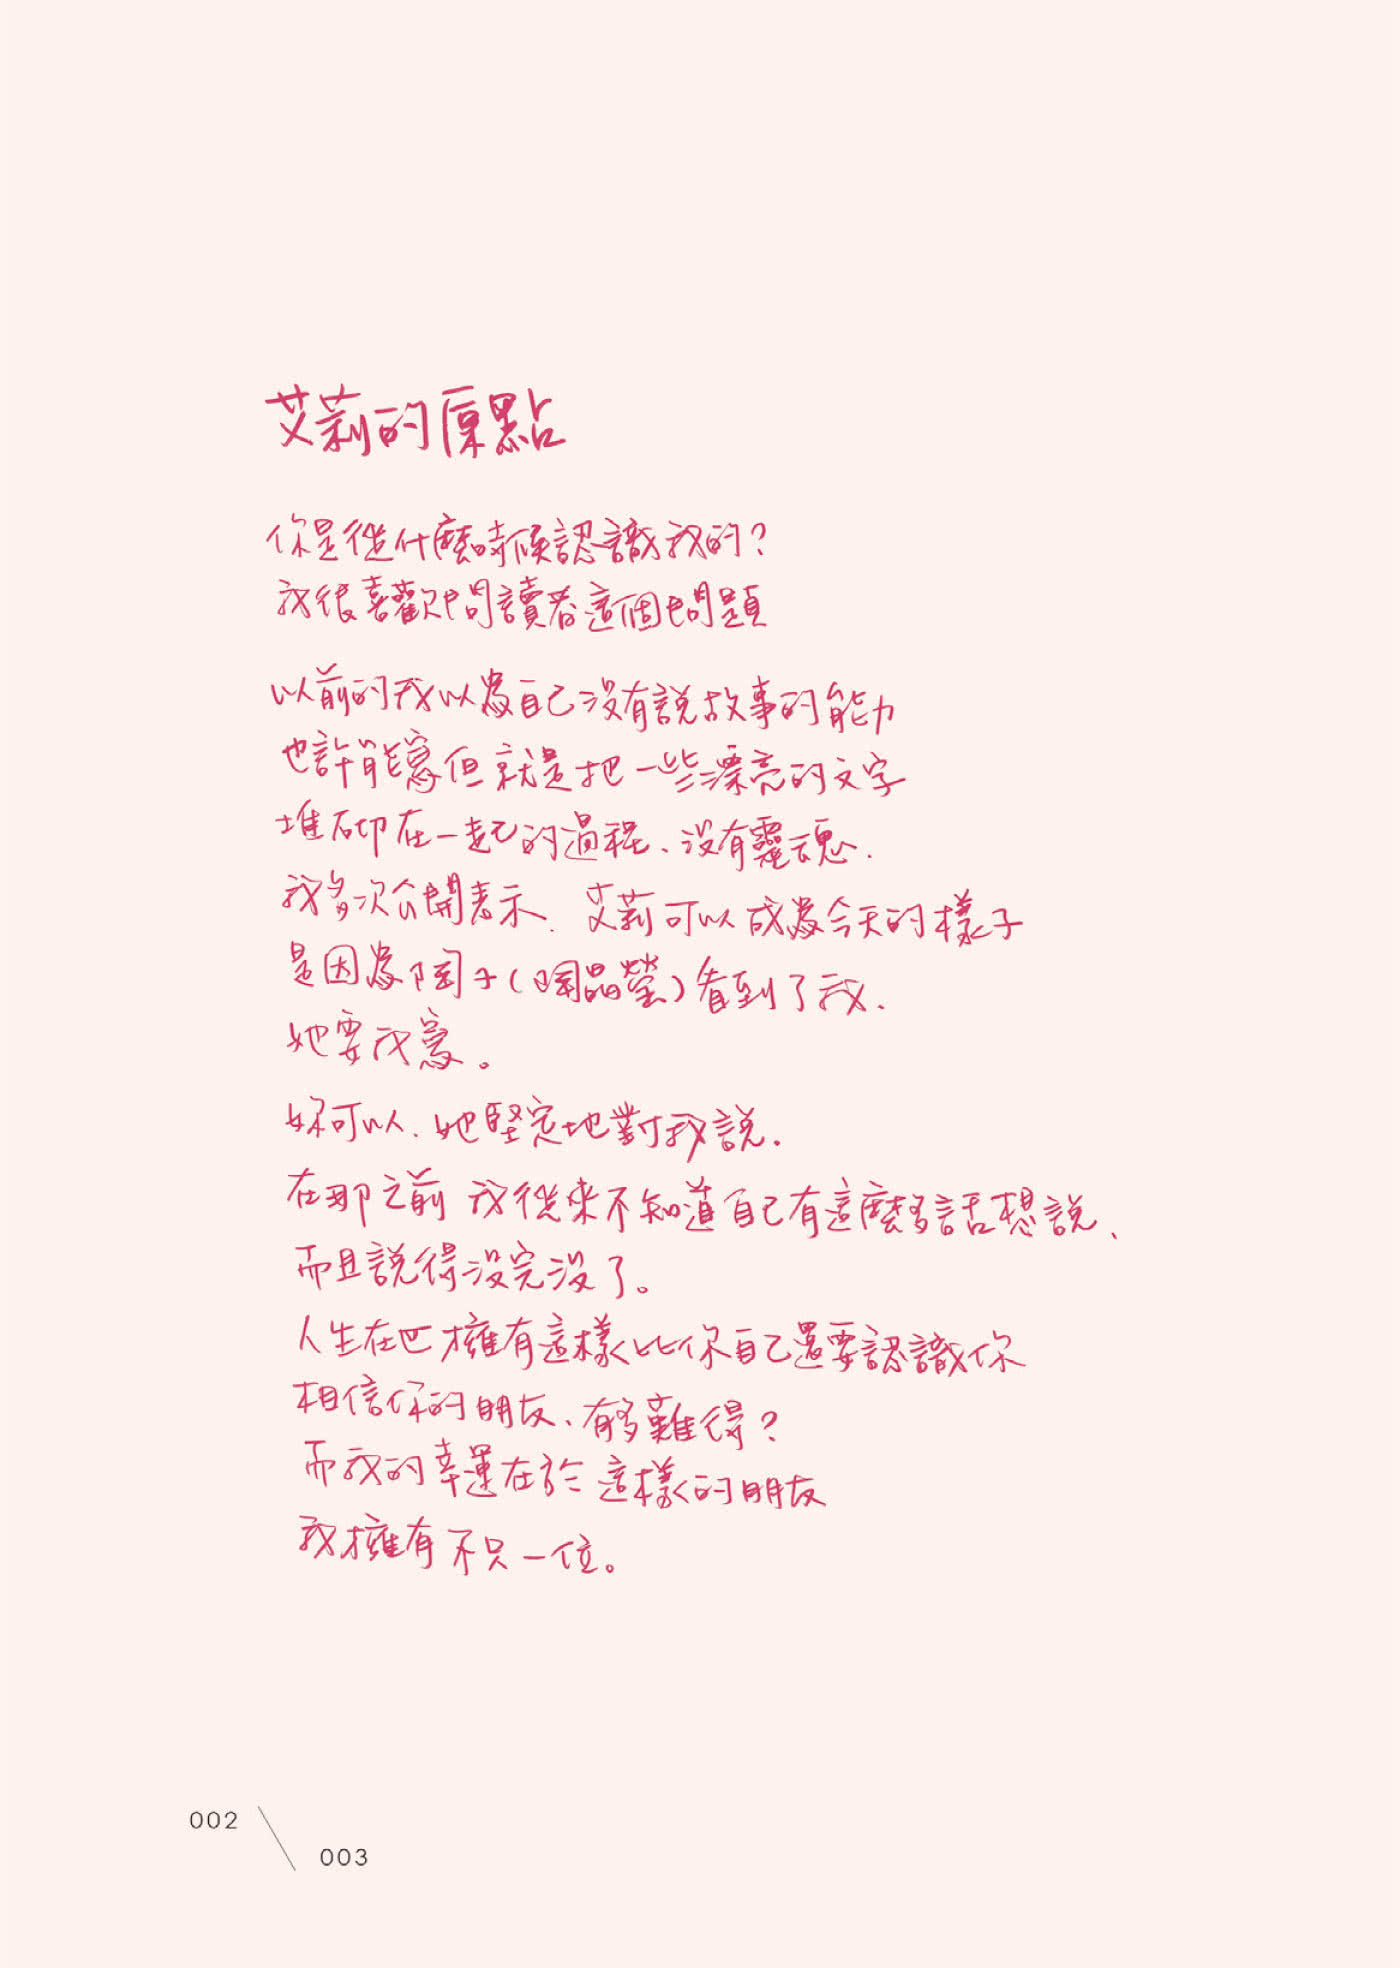 艾莉的原點
你是從什麼時候認識我的?
我很喜歡問讀者這個問題
以前的我以為自己沒有說故事的能力
也許能寫但就是把一些漂亮的文字
堆砌在一起的過程、沒有靈魂.
我多次公開表示.艾莉可以成為今天的樣子
是因為陶子(陶晶瑩)看到了我、
她要我寫。
妳可以.她堅定地對我說.
在那之前 我從來不知道自己有這麼多話想說、
而且說得沒完沒了。
人生在世擁有這樣比你自己還要認識你
相信你的朋友、有多難得?
而我的幸運在於這樣的朋友
我擁有不只一位。
002
003